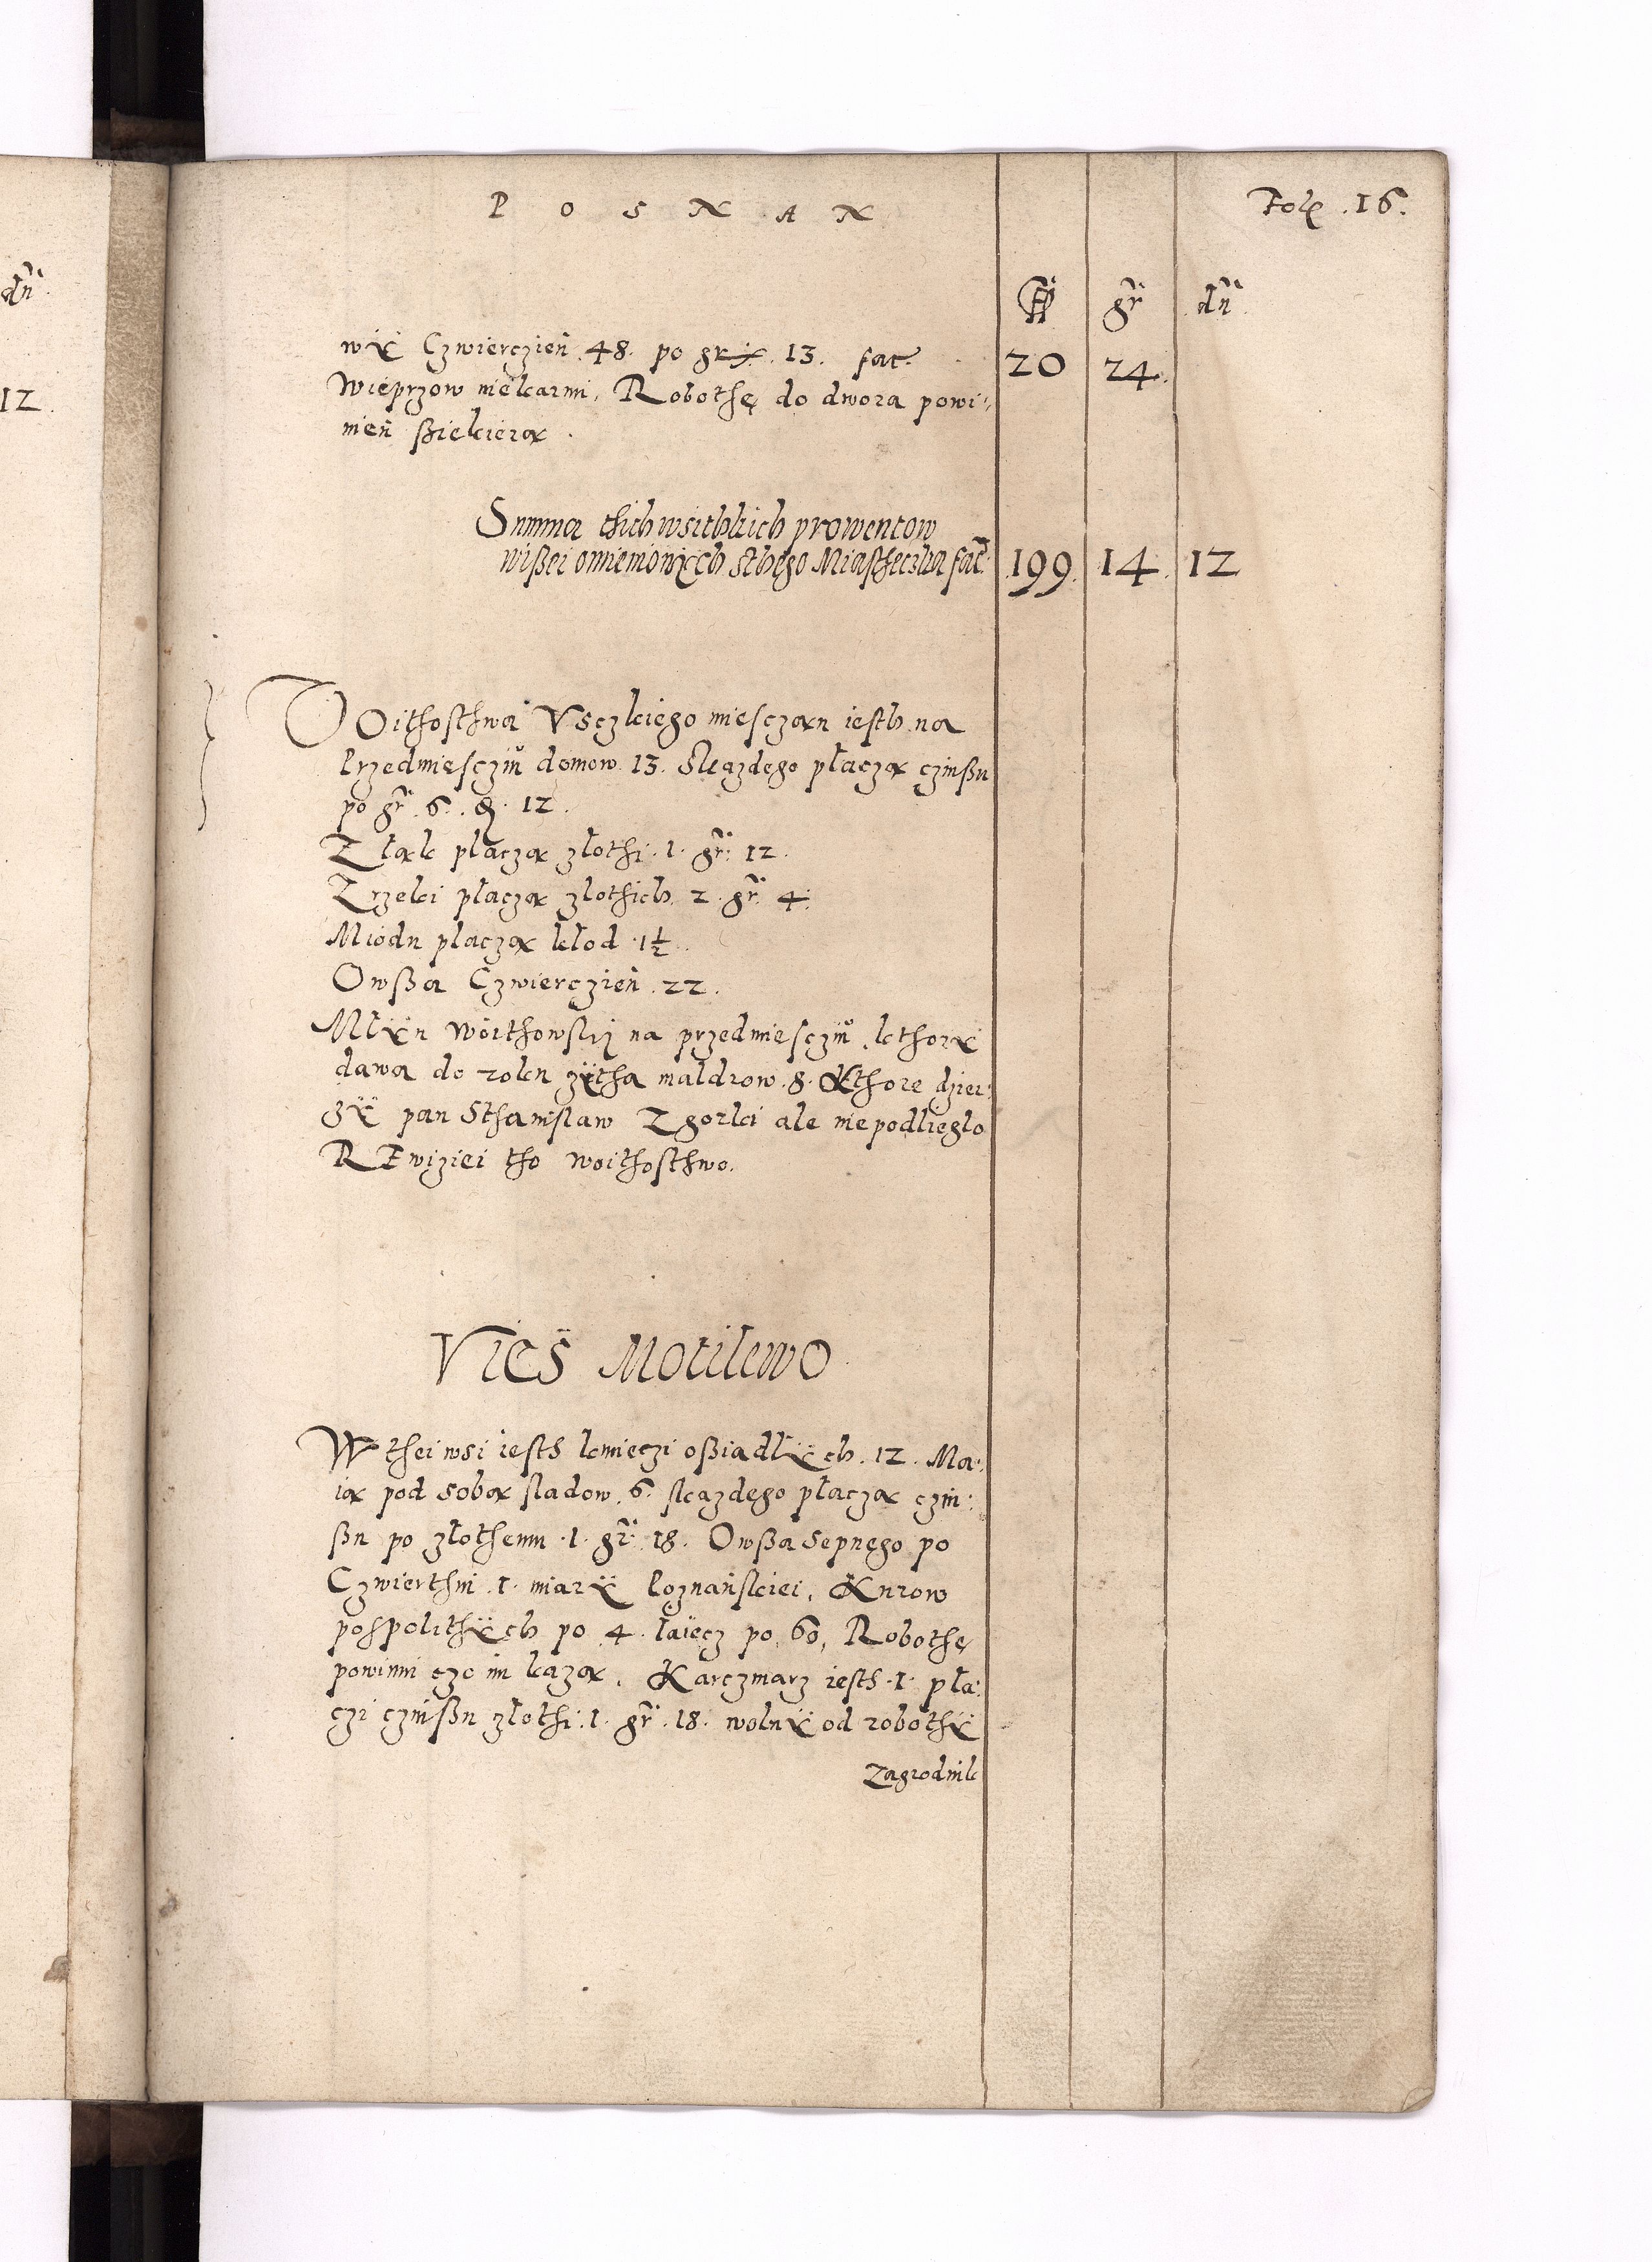 dñ
12
P O S N A N
Fol. 16.
fl gr̃ dñ
wÿ Czwierczień 48. po gr. 13. fac. 20 24.
Wieprzow niekarmi, Robothę do dwora powi-
nień ßiekierą.
Summa thich wsithkich prowentow
wißei omienionÿch Sthego Miastheczka fac. 199. 14. 12
Woithosthwa Vsczkiego miesczan iesth na
Przedmiesczÿŭ domow 13. Skazdego płaczą czinßu
po gr̃. 6. ꝺ. 12.
Z łąk płaczą złothi. 1. gr̃. 12.
Z rzeki płaczą złothich. 2. gr̃. 4.
Miodu płaczą kłod. 1½.
Owßa Czwierczień. 22.
Młÿn Woithowskij na przedmiesczŭ, kthorÿ
dawa do roku zÿtha maldrow. 8. Kthore dzier-
zÿ pan Sthanislaw Zgorki ale niepodliegło
REwiziei tho woithosthwo.
Vieś Motilewo
W thei wsi iesth kmieczi oßiadłÿch. 12. Ma-
ią pod sobą sladow. 6. skazdego płaczą czin-
ßu po złothemu. 1. gr̃. 18. Owßa sepnego po
Czwierthni. 1. miarÿ Poznańskiei, Kurow
pospolithÿch po 4. Iaiecz po. 60, Robothę
powinni czo im każą. Karczmarz iesth. 1. pła-
czi czinßu złothi. 1. gr̃. 18. wolnÿ od robothÿ
Zagrodnik